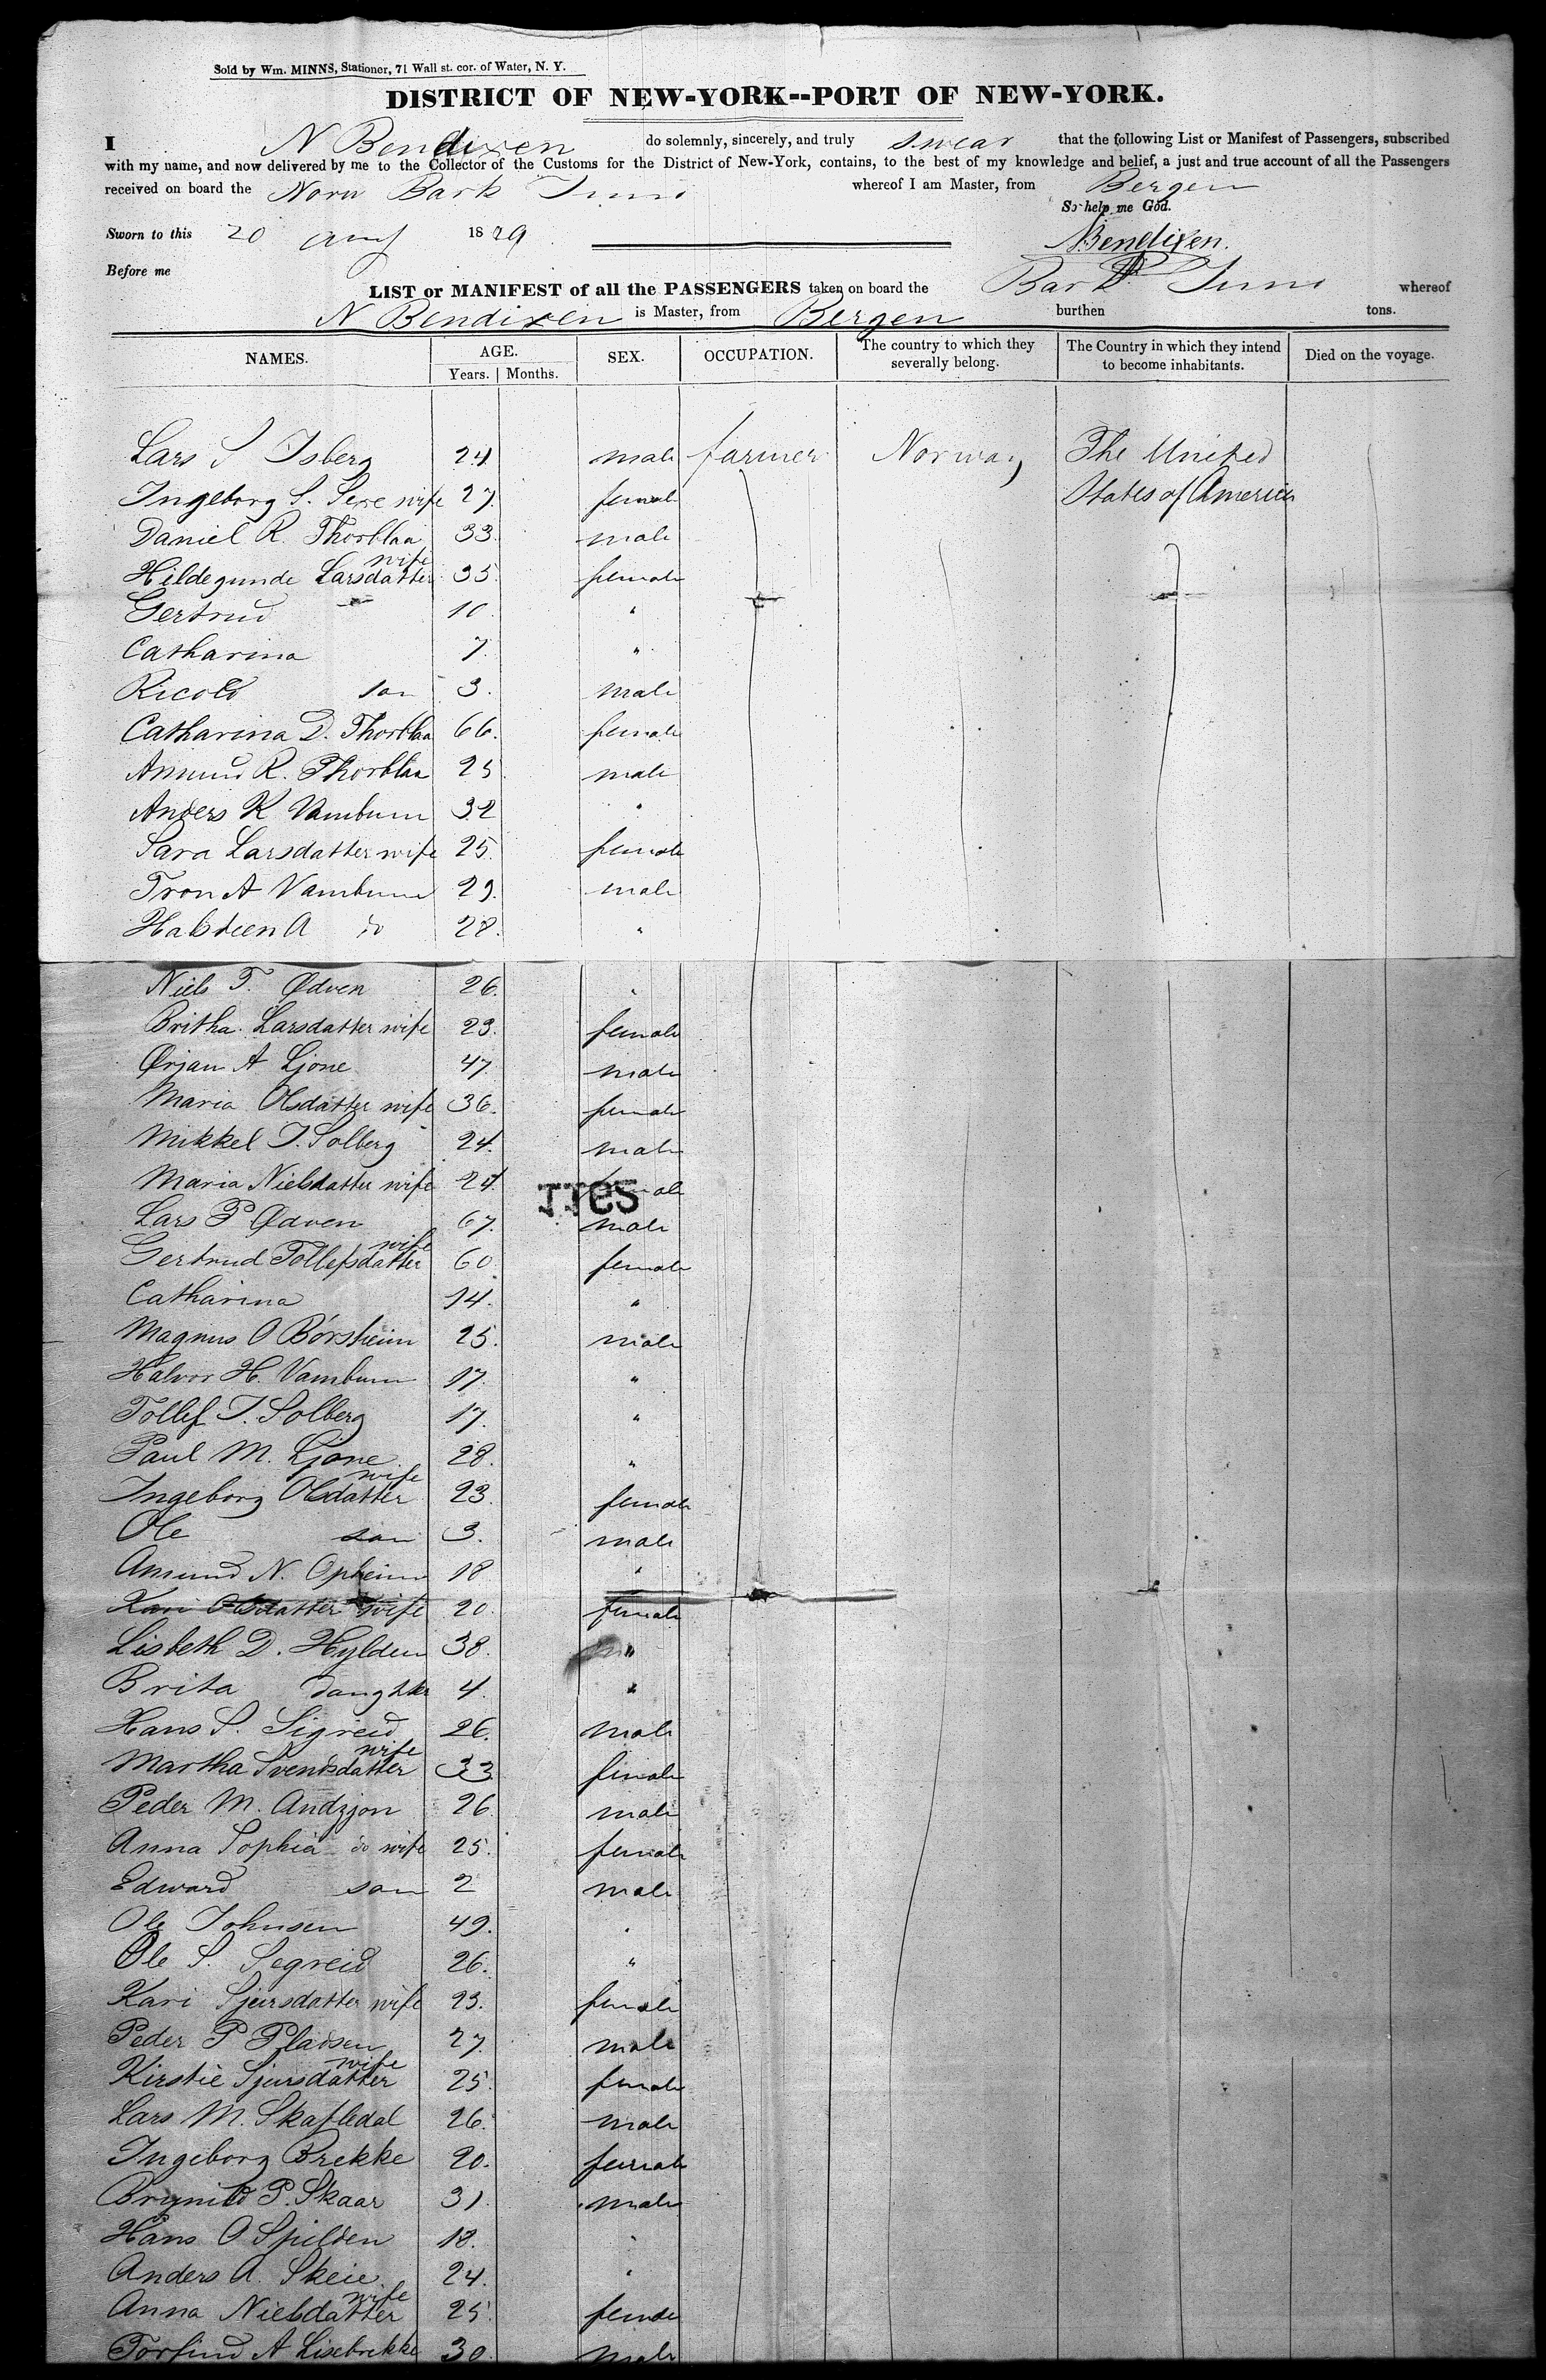 Sold by Wm. MINNS, Stationer, 71 Wall st. cor. of Water, N. Y.
DISTRICT OF NEW-YORK--PORT OF NEW-YORK.
I N Bendixen do solemnly, sincerely, and truly swear that the following List or Manifest of Passengers, subscribed
with my name, and now delivered by me to the Collector of the Customs for the District of New-York, contains, to the best of my knowledge and belief, a just and true account of all the Passengers
received on board the Norw Bark Juno whereof I am Master, from Bergen
So help me God.
Sworn to this 20 Aug 1849
NBendixen.
Before me
LIST or MANIFEST of all the PASSENGERS taken on board the Bark Juno whereof
N Bendixen is Master, from Bergen burthen tons.
NAMES. AGE. SEX. OCCUPATION. The country to which they severally belong. The Country in which they intend to become inhabitants. Died on the voyage.
Years. Months.
Lars S Isberg 24 male farmer Norway The United
Ingeborg S. Sexe wife 27. female States of America
Daniel R. Thorblaa 33. male
Hildegunde Larsdatter wife 35. female
Gertrud 10. "
Catharina 7. "
Ricold son 3. male
Catharina D. Thorblaa 66. female
Amund R. Thorblaa 25. male
Anders K Vambum 32 "
Sara Larsdatter wife 25. female
Tron A Vambum 29. male
Halsteen A do 28. "
Niels T. Ødven 26. "
Britha Larsdatter wife 23. female
Ørjan A Ljone 47. male
Maria Olsdatter wife 36. female
Mikkel T. Solberg 24. male
Maria Nielsdatter wife 24. female
Lars P Ødven 67. male
Gertrud Tollefsdatter wife 60. female
Catharina 14. "
Magnus O Børsheim 25. male
Halvor H. Vambum 17. "
Tollef T. Solberg 17. "
Paul M. Ljone 28. "
Ingeborg Olsdatter wife 23. female
Ole son 3. male
Amund N. Opheim 18 "
Kari Olsdatter wife 20. female
Lisbeth D. Hylden 38. "
Brita daughter 4. "
Hans S. Sigreid 26. male
Martha Svendsdatter wife 33 female
Peder M. Andzjon 26. male
Anna Sophia do wife 25. female
Edward son 2 male
Ole Johnsen 49. "
Ole S. Segreid 26. "
Kari Sjursdatter wife 23. female
Peder P Pladsen 27. male
Kirstie Sjursdatter wife 25. female
Lars M. Skafledal 26. male
Ingeborg Brekke 20. female
Brynild P. Skaar 31. male
Hans O Spilden 18. "
Anders A. Skeie 24. "
Anna Nielsdatter wife 25. female
Torfind A Lisebrekke 30. male